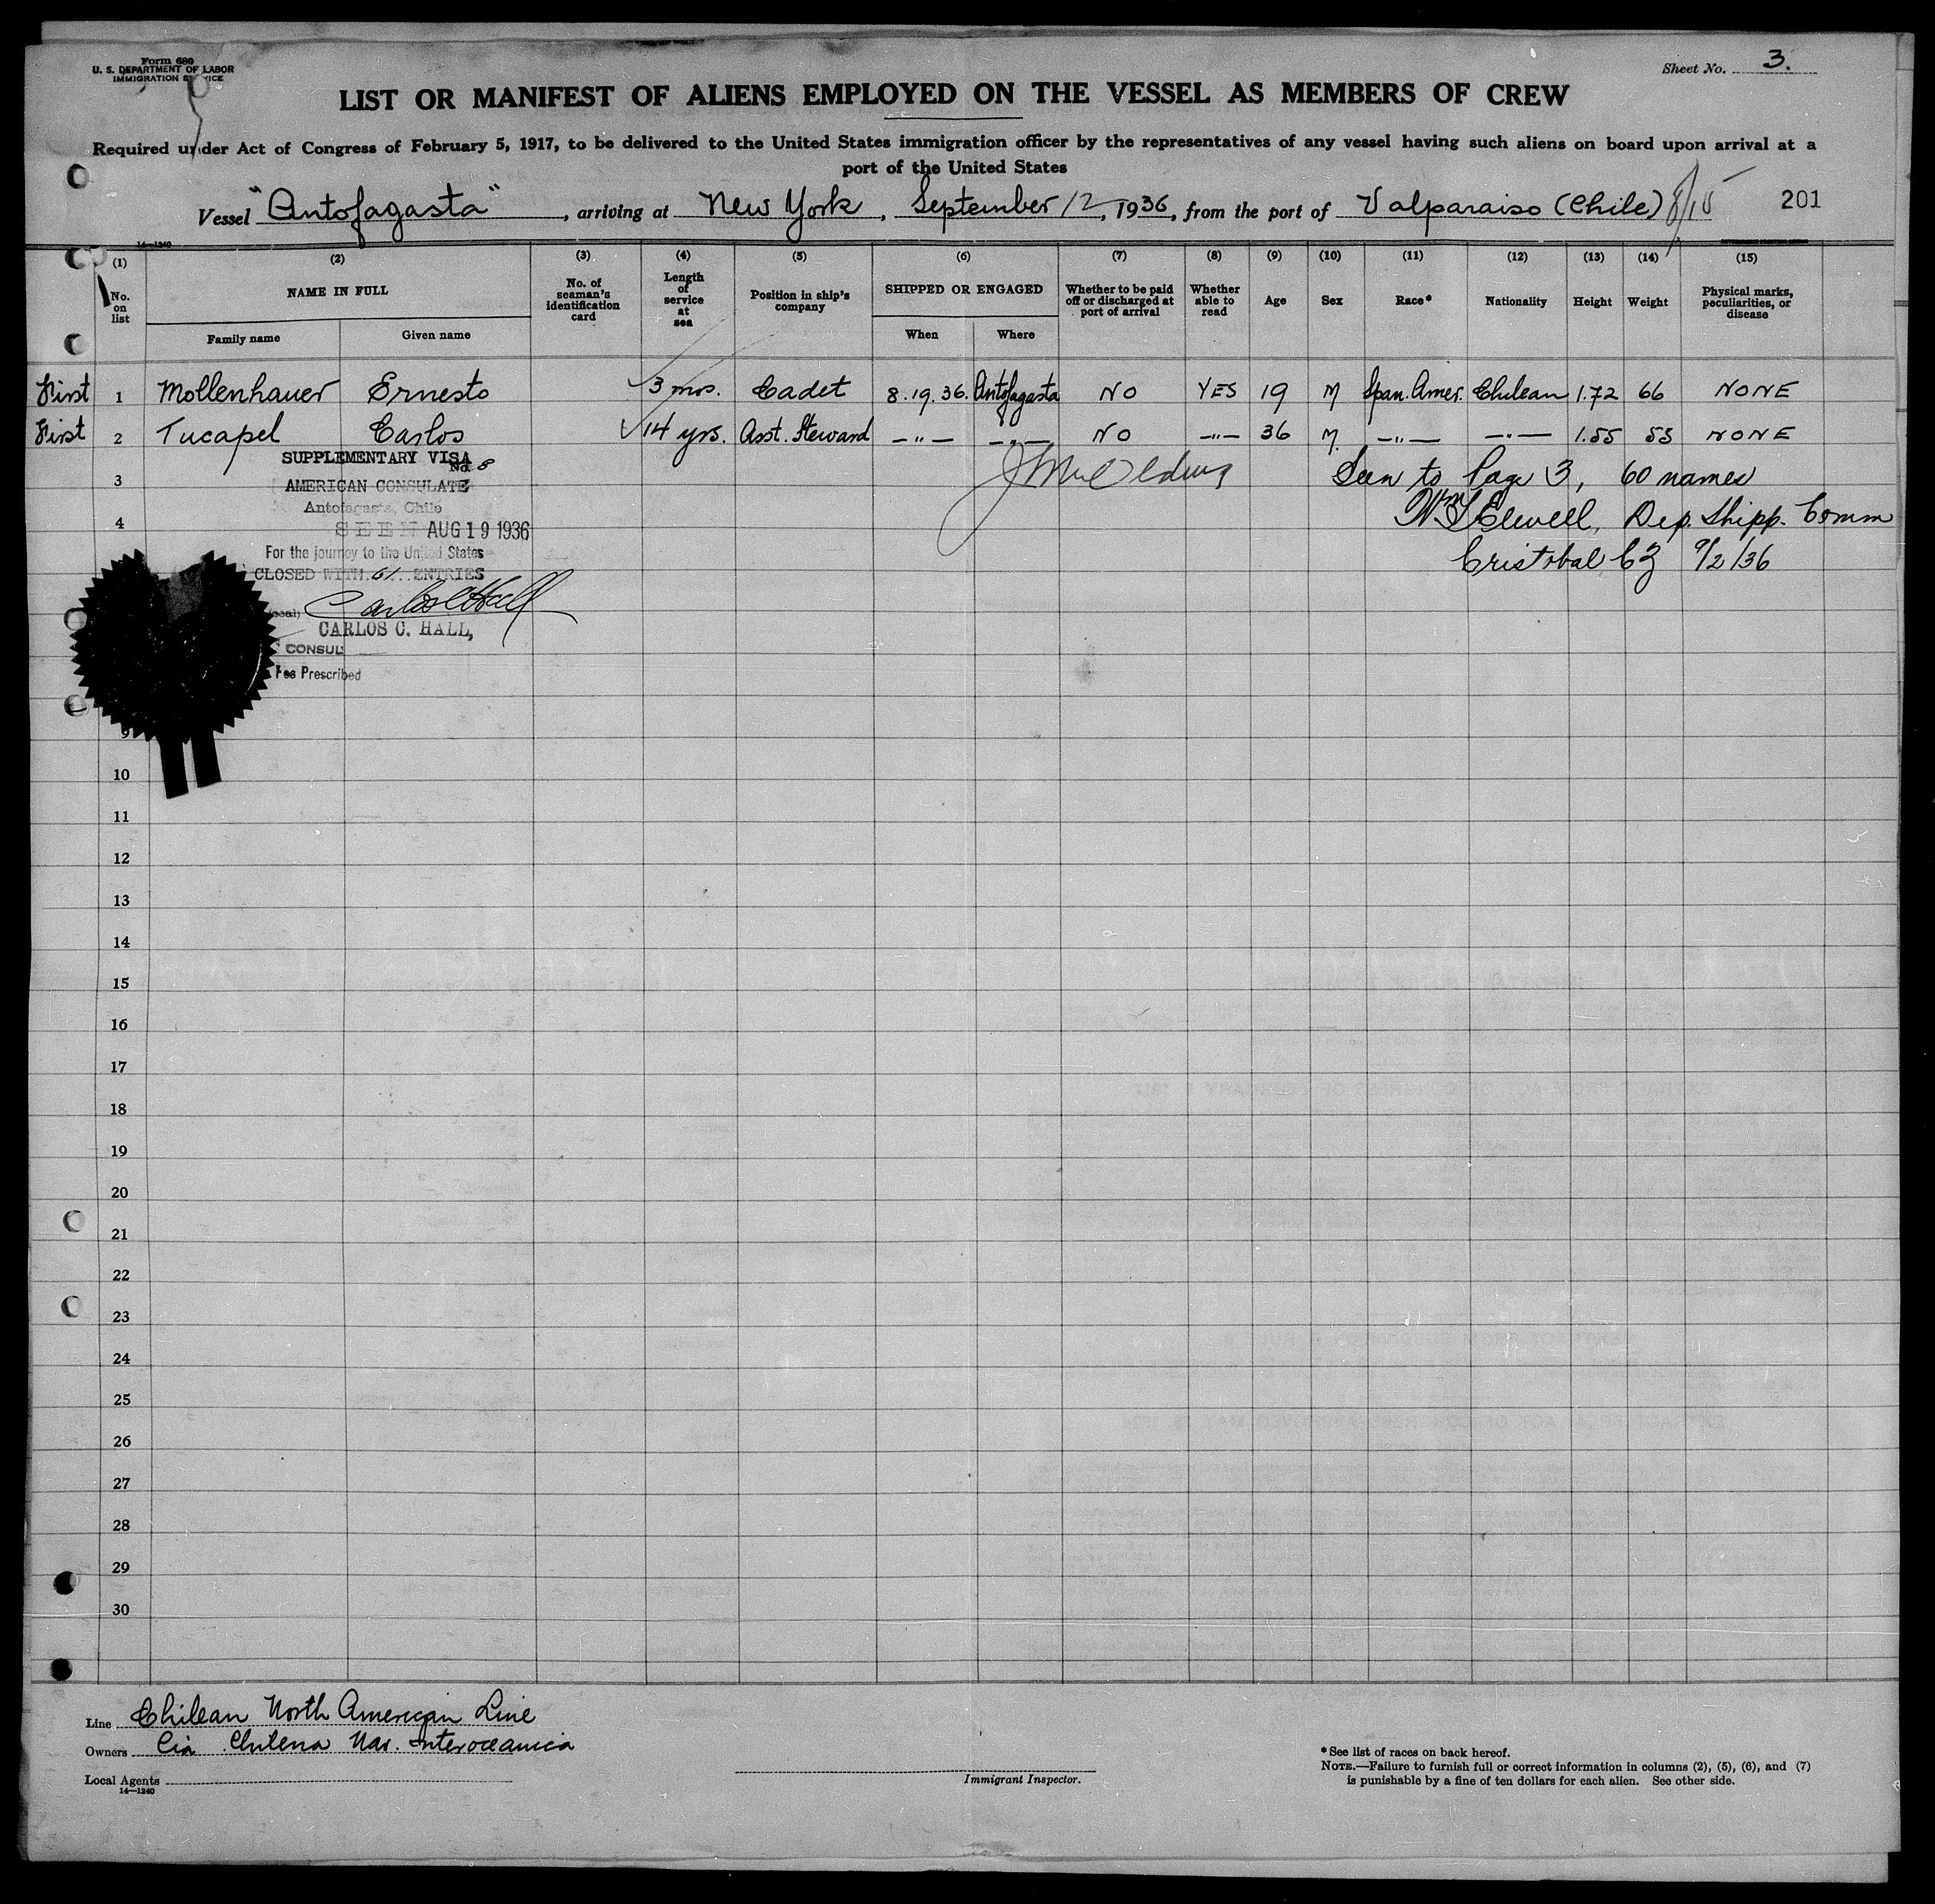 Form 680
U. S. DEPARTMENT OF LABOR
IMMIGRATION SERVICE
Sheet No. 3.
LIST OR MANIFEST OF ALIENS EMPLOYED ON THE VESSEL AS MEMBERS OF CREW
Required under Act of Congress of February 5, 1917, to be delivered to the United States immigration officer by the representatives of any vessel having such aliens on board upon arrival at a
port of the United States
Vessel "Antofagasta", arriving at New York, September 12, 1936, from the port of Valparaiso (Chile) 8/15 201
14—1240
(1) (2) (3) (4) (5) (6) (7) (8) (9) (10) (11) (12) (13) (14) (15)
No. on list NAME IN FULL No. of seaman's identification card Length of service at sea Position in ship's company SHIPPED OR ENGAGED Whether to be paid off or discharged at port of arrival Whether able to read Age Sex Race* Nationality Height Weight Physical marks, peculiarities, or disease
Family name Given name When Where
First 1 Mollenhauer Ernesto 3 mos. Cadet 8.19.36. Antofagasta NO YES 19 M Span. Amer. Chilean 1.72 66 NONE
First 2 Tucapel Carlos 14 yrs. Asst. Steward —"— —"— NO —"— 36 M. —"— —"— 1.55 53 NONE
SUPPLEMENTARY VISA
No. 8
3 AMERICAN CONSULATE Seen to Page 3, 60 names
Antofagasta, Chile
4 SEEN AUG 19 1936 Wm S Elwell, Dep. Shipp. Comm
For the journey to the United States Cristobal CZ 9/2/36
CLOSED WITH 61 ENTRIES
(seal) Carlos C Hall
CARLOS C. HALL,
CONSUL
Fee Prescribed
9
10
11
12
13
14
15
16
17
18
19
20
21
22
23
24
25
26
27
28
29
30
Line Chilean North American Line
Owners Cia Chilena Nav. Interoceanica
Local Agents
14—1240
Immigrant Inspector.
*See list of races on back hereof.
NOTE.—Failure to furnish full or correct information in columns (2), (5), (6), and (7)
is punishable by a fine of ten dollars for each alien. See other side.